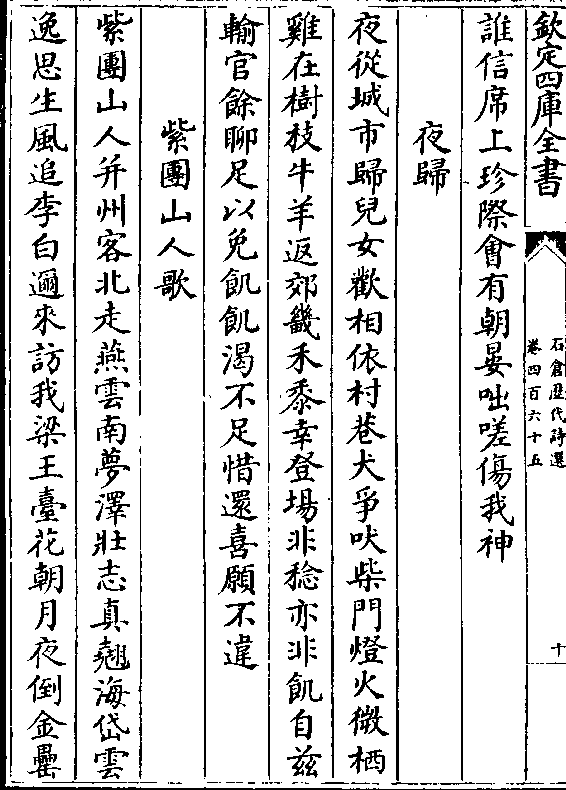 欽定四庫全書
石倉歷代詩選
卷四百六十五
十
誰信席上珍際會有朝晏咄嗟傷我神
夜歸
夜從城市歸兒女歡相依村巷犬爭吠柴門燈火微栖
雞在樹枝牛羊返郊畿禾黍幸登場非稔亦非飢自兹
輸官餘聊足以免飢飢渴不足惜還喜願不違
紫團山人歌
紫團山人并州客北走燕雲南夢澤壯志真翹海岱雲
逸思生風追李白邇來訪我梁王臺花朝月夜倒金罍